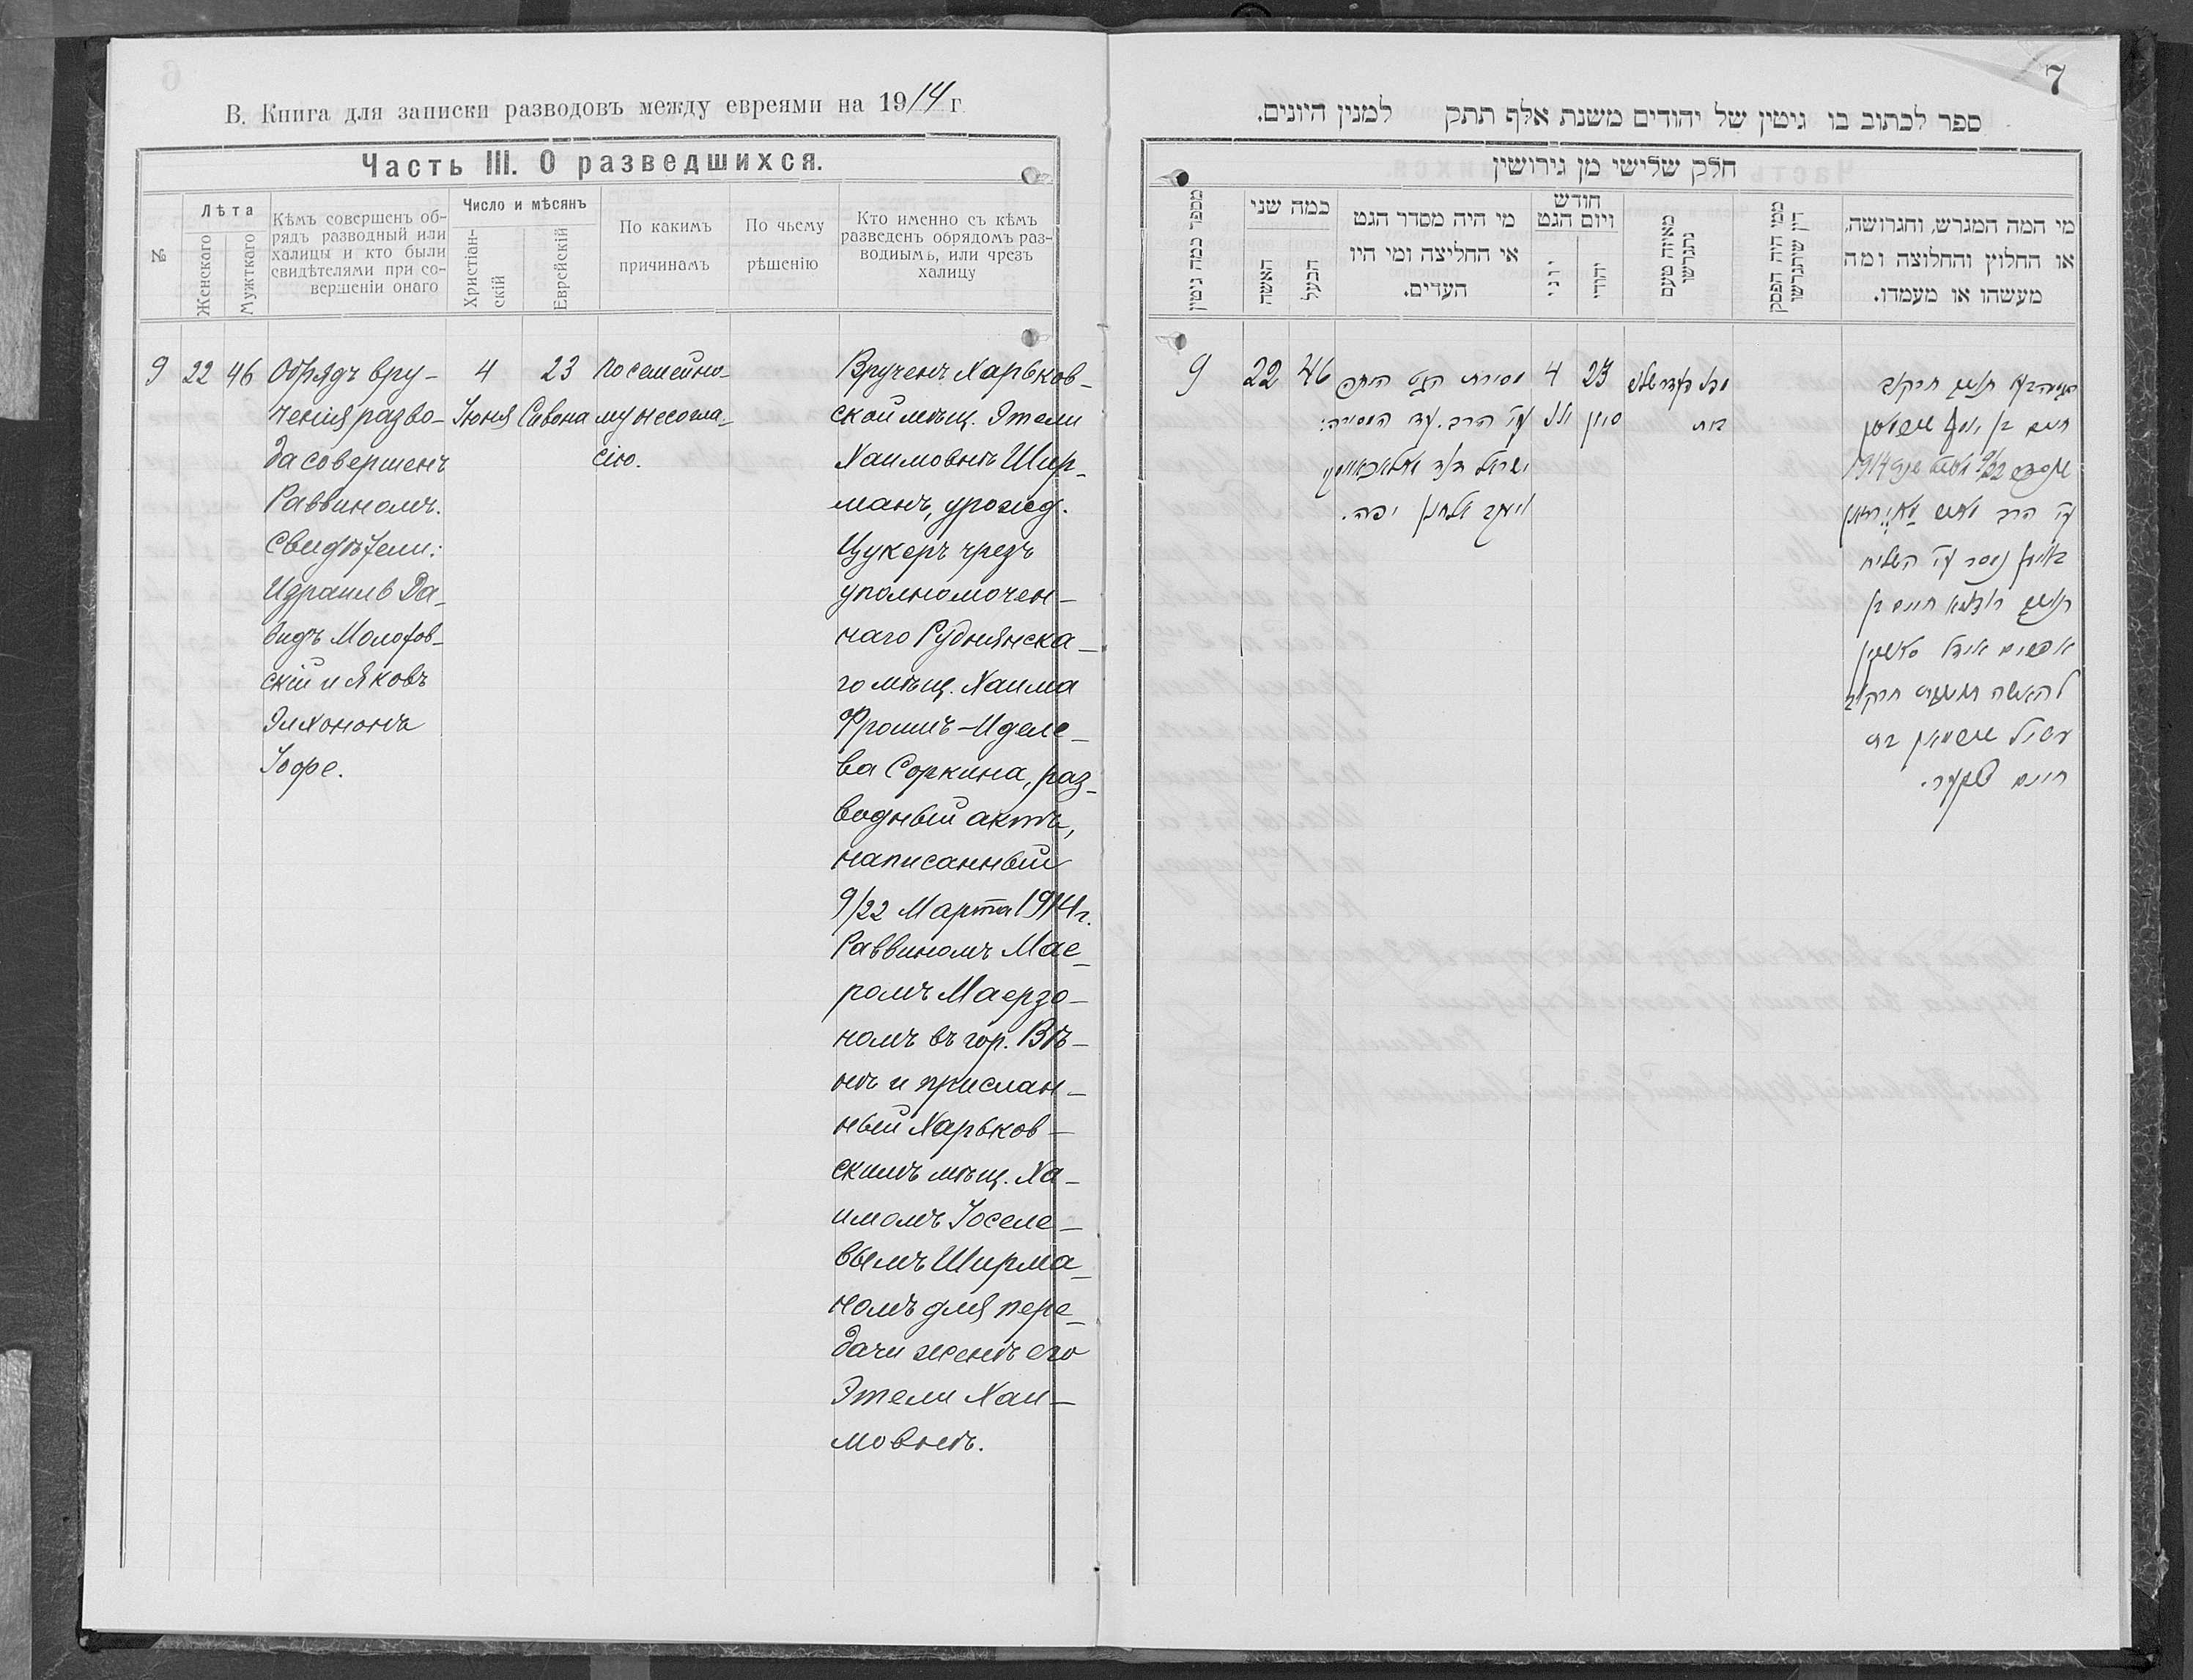 В. Книга для записки разводовъ между евреями на 1914 г
Часть III. О разведшихся.
№
Лѣта
Женскаго
Мужткаго
Кѣмъ совершенъ об-
рядъ разводный или
халицы и кто были
свидѣтелями при со-
вершеніи онаго
Число и мѣсянъ
Христіан-
скій
Еврейскій
По какимъ
причинамъ
По чьему
рѣшенію
Кто именно съ кѣмъ
разведенъ обрядомъ раз-
воднымъ, или чрезъ
халицу
9
22
46
Обрядъ вру-
ченія разво-
да совершенъ
Раввиномъ.
Свидѣтели:
Израиль Да-
видъ Молотов-
скій и Яковъ
Элхононъ
Іофе.
4
Іюня
23
Сивона
По семейно-
му несогла-
сію.
Врученъ Харьков-
ской мѣщ. Этели
Хаимовнѣ Шир-
манъ, урожд.
Цукеръ чрезъ
уполномочен-
наго Руднянска-
го мѣщ. Хаима
Фроимъ-Иделе-
ва Соркина, раз-
водный актъ,
написанный
9/22 Марта 1914 г.
Раввиномъ Мае-
ромъ Маерзо-
номъ въ гор. Вѣ-
нѣ и прислан-
ный Харьков-
скимъ мѣщ. Ха-
имомъ Іоселе-
вымъ Ширма-
номъ для пере-
дачи женѣ его
Этели Хаи-
мовнѣ.
7
ספר לכתוב בו גיטין של יהודים משנת אלף תתק למנין היונים.
חלק שלישי מן גירושין
מספר כמה גיטין
כמה שני
האשה
הבעל
מי היה מסדר הגט
או החליצה ומי היו
העדים.
חודש
ויום הגט
יוני
יהודי
מאיזה טעם
נתגרשו
ממי היה הפסק
דין שיתגרשו
מי המה המגרש, והגרושה,
או החלוץ והחלוצה ומה
מעשהו או מעמדו.
9
22
46
מסירת הגט
הרב
ישראל דוד
יפה.
4
יולי
23
סיון
חיים בן יוסף שירמאן
9/22 1914
הרב
חיים בן
חיים צוקער.